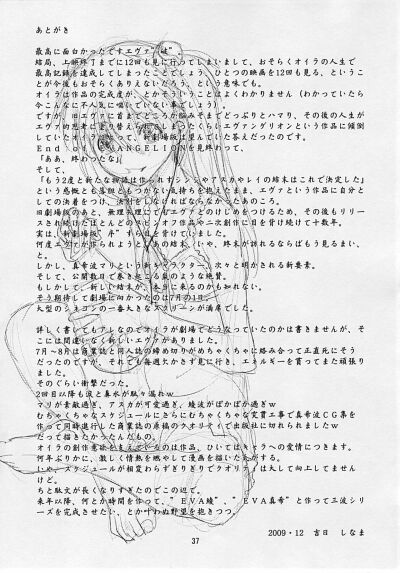 あとがき
最高に面白かったですエヴァ"破"
結局、上映終了までに12回も見に行ってしまいまして、おそらくオイラの人生で
最高記録を達成してしまったことでしょう、ひとつの映画を12回も見る、というこ
とが今後もおそらくありえないだろう、という意味でも。
オイラは作品の完成度が、とかそういうことはよくわかりません（わかっていたら
今こんなに不人気に喘いでいない事でしょう）
ですが、旧エヴァに首までどころか脳天までどっぷりとハマり、その後の人生が
エヴァ的思考に
オイラにとって、新劇場版は望んでいた答えだったのです。
End of EVANGELIONを見終わって、
「ああ、終わったな」
そして、
「もう2度と新たな物語は作られずシンジやアスカやレイの結末はこれで決定した」
という感慨とも落胆ともつかない気持ちを抱えたまま、エヴァという作品に自分と
しての決着をつけ、決別をしなければならなかったあのころ。
旧劇場版のあと、無理矢理にでもエヴァとのけじめをつけるため、その後もリリー
スされ続けたほとんどのスピンオフ作品や二次創作に目を背け続けて十数年。
実は、新劇場版"序"すらも目を背けていました。
何度エヴァが作られようと、あの結末、いや、終末が訪れるならばもう見るまい、
と。
しかし、真希波マリという新キャラクター、次々と明かされる新要素。
そして、公開数日で巻き起こる嵐のような絶賛。
もしかして、新しい結末が、本当に来るのかも知れない。
そう期待して劇場に向かったのは7月の1日。
大型のシネコンの一番大きなスクリーンが満席でした。
詳しく書いてもアレなのでオイラが劇場でどうなっていたのかは書きませんが、そ
こには間違いなく新しいエヴァがありました。
7月～8月は商業誌と同人誌の締め切りがめちゃくちゃに絡み合って正直死にそう
だったのですが、それでも毎週欠かさず見に行き、エネルギーを貰ってまた頑張り
ました。
そのぐらい衝撃だった。
2回目以降も涙と鼻水が駄々漏れw
マリが素敵過ぎ、アスカが可愛過ぎ、綾波がぽかぽか過ぎw
むちゃくちゃなスケジュールにさらにむちゃくちゃな突貫工事で真希波CG集を
作って同時進行した商業誌の原稿のクオリティで出版社に切られられましたw
だって描きたかったんだもの。
オイラの創作意欲を支えているのは作品、ひいてはキャラへの愛情につきます。
何年ぶりかに、激しく情熱を燃やして漫画を描いた気がする。
いや、スケジュールが相変わらずぎりぎりでクオリティは大して向上してません
けど。
ちと駄文が長くなりすぎたのでこの辺で。
来年以降、何とか時間を作って、"EVA綾"、"EVA真希"と作って三波シリ
ーズを完成させたい、とか叶わぬ野望を抱きつつ。
2009・12 吉日 しなま
37